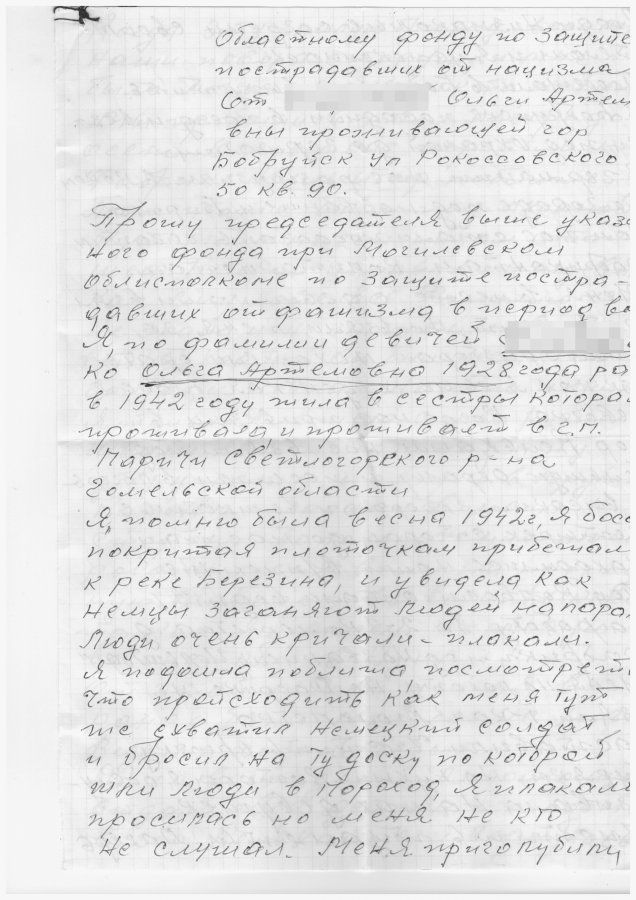 Областному фонду по защите
пострадавших от нацизма
От Ольги Артем
вны проживающей гор
Бобруйск ул Рокоссовского
50 кв. 90.
Прошу председателя выше указа
ного фонда при Могилевском
облисполкоме по защите постра-
давших от фашизма в период во
Я, по фамилии девичей
ко Ольга Артемовна 1928 года ро
в 1942 году жила в сестры котора
проживала, и проживает в г.п.
Паричи Светлогорского р-на
Гомельской области
Я, помню была весна 1942г, я босо
покритая плоточкам прибежал
к реке Березина, и увидела как
немцы заганяют людей на паро
Люди очень кричали – плакали.
Я подошла поближа, посмотреть
что происходить как меня тут
же схватил немецкий солдат
и бросил на ту доску по которой
шли люди в пороход, Я плакала
просилась но меня не кто
не слушал. Меня приголубили